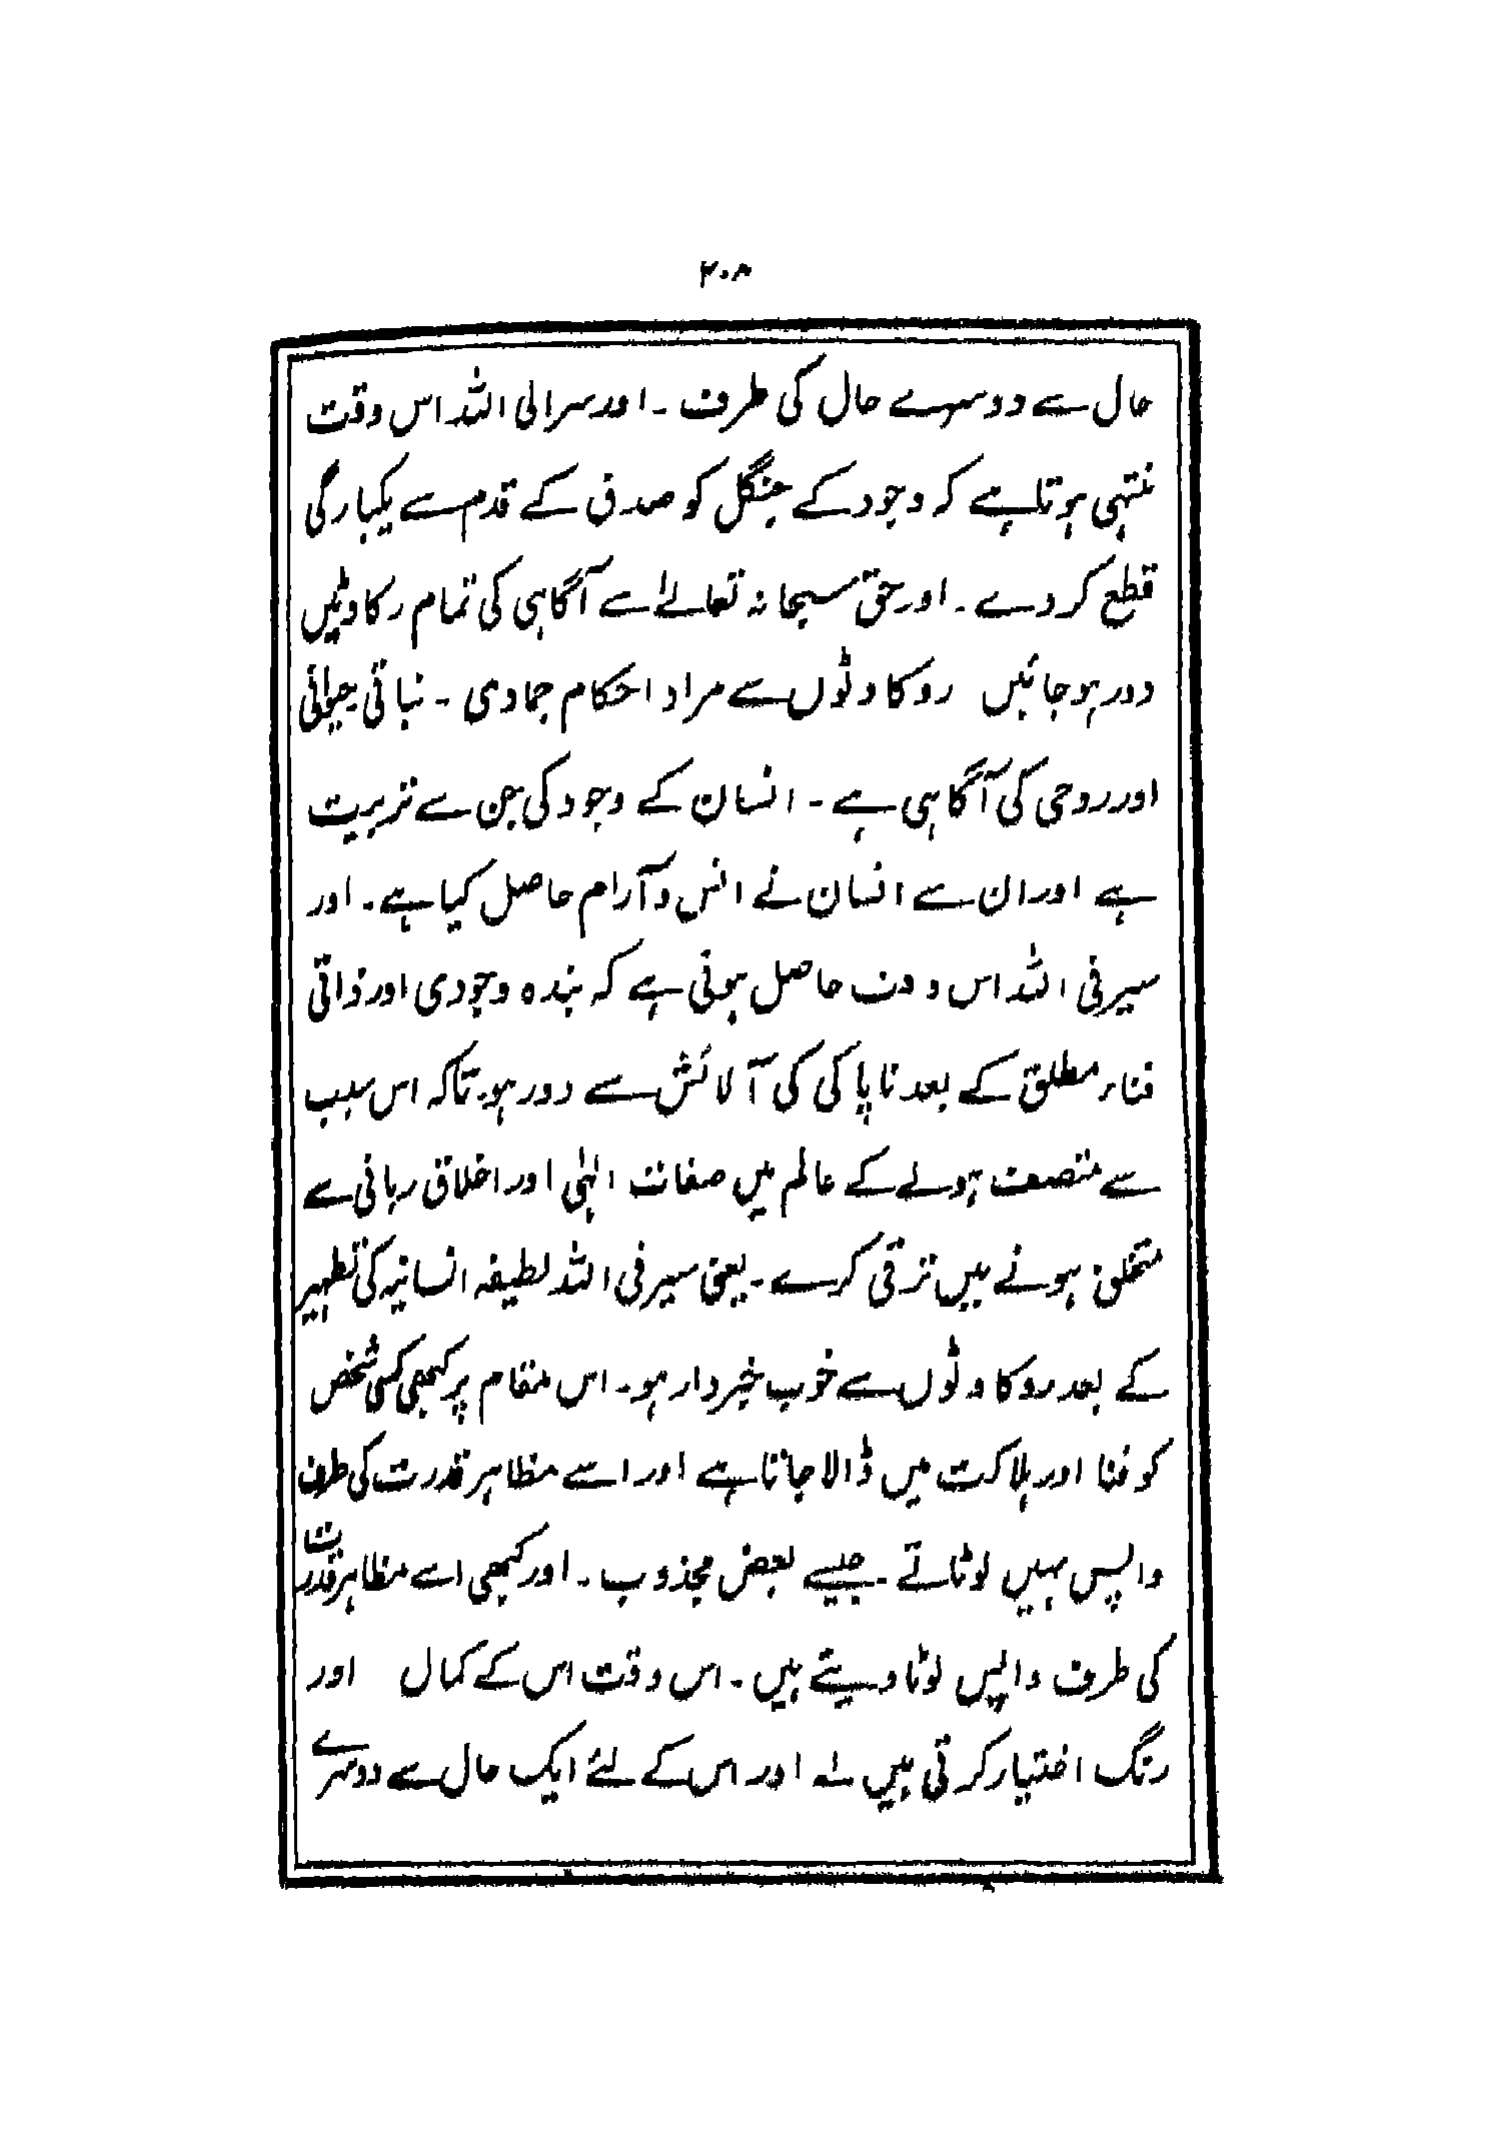 ۲۰۸
حال سے دوسرے حال کی طرف ۔ اور سرالی اللہ اس وقت
منتہی ہوتا ہے کہ وجود کے جنگل کو صدق کے قدم سے یکبارگی
قطع کر دے ۔ اور حق سبحانہ تعالےٰ اسے آگاہی کی تمام رکاوٹیں
دور ہو جائیں روکاوٹوں سے مراد احکام جمادی ۔ نباتی حیوانی
اور روحی کی آگاہی ہے ۔ انسان کے وجود کی جن سے تربیت
ہے اور ان سے انسان نے انس و آرام حاصل کیا ہے ۔ اور
سیر فی اللہ اس وقت حاصل ہوتی ہے کہ بندہ وجودی اور ذاتی
فناء مطلق کے بعد ناپاکی کی آلائش سے دور ہو۔ تاکہ اس سبب
سے متصف ہونے کے عالم میں صفات الہٰی اور اخلاق ربانی سے
متخلق ہونے میں ترقی کرے ۔ یعنی سیر فی اللہ لطیفہ انسانیہ کی تطہیر
کے بعد روکاوٹوں سے خوب خبردار ہو ۔ اس مقام پر کبھی کسی شخص
کو فنا اور ہلاکت میں ڈالا جاتا ہے اور اسے مظاہر قدرت کی طرف
واپس نہیں لوٹاتے ۔ جیسے بعض مجذوب ۔ اور کبھی اسے مظاہر قدرت
کی طرف واپس لوٹا دیتے ہیں ۔ اس وقت اس کے کمال اور
رنگ اختیار کرتی ہیں لہ اور اس کے لئے ایک حال سے دوسرے